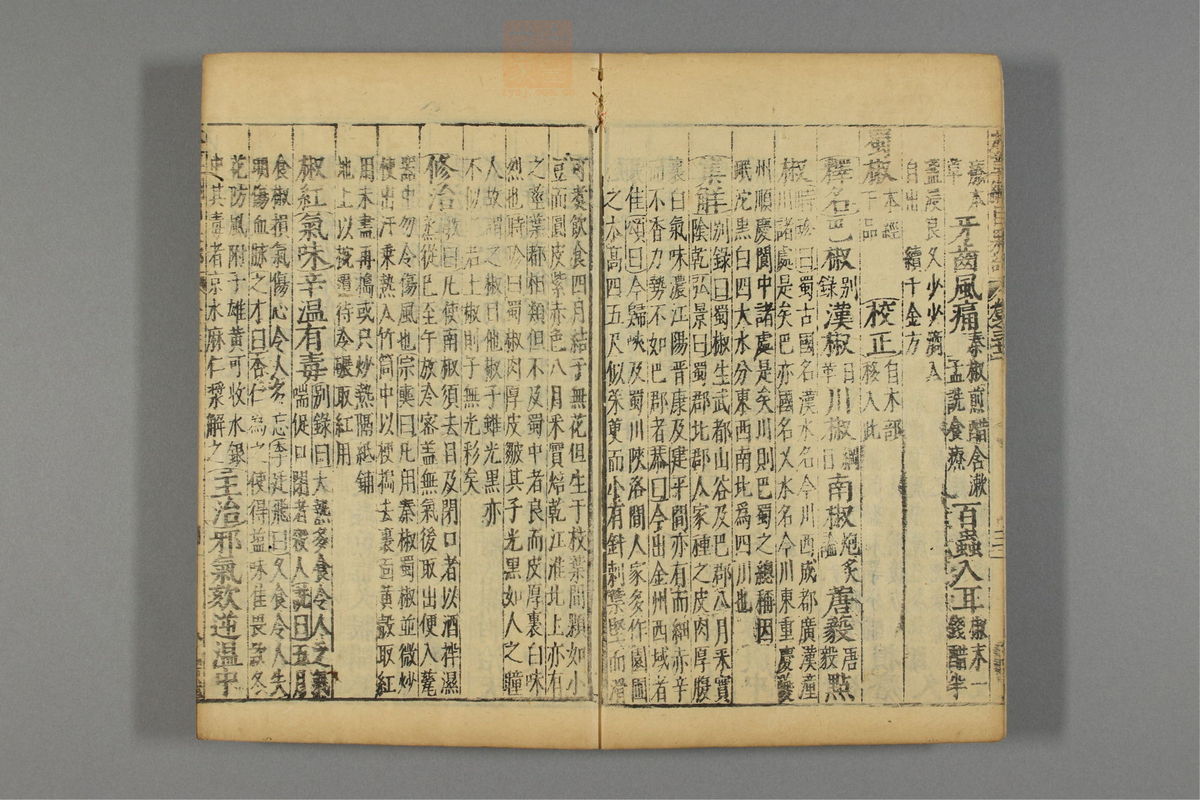 療本草 牙齒風痛 秦椒煎醋含漱 孟詵食療 百蟲入耳 椒末一錢醋半
盞浸良久少少滴入
自出 續千金方
蜀椒 本經下品 校正 自木部移入此
釋名 巴椒 別錄 漢椒 日華 川椒 綱目 南椒 炮炙論 蓎藙 唐毅 點
椒 時珍曰蜀古國名漢水名今川西成都廣漢潼
川諸處是矣巴亦國名又水名今川東重慶夔
州順慶閬中諸處是矣川則巴蜀之總稱因
岷沱黑白四大水分東西南北爲四川也
集解 別錄曰蜀椒生武都山谷及巴郡八月采實
陰乾弘景曰蜀郡北郡人家種之皮肉厚腹
裏白氣味濃江陽晋康及建平間亦有而細赤辛
而不香力勢不如巴郡者恭曰今出金州西域者
佳頌曰今歸峽及蜀川陝洛間人家多作園圃
之木高四五尺似茱萸而小有針刺葉堅而滑
可煮飲食四月結子無花但生于枝葉間顆如小
豆而圓皮紫赤色八月采實焙乾江淮北土亦有
之莖葉都相類但不及蜀中者良而皮厚裏白味
烈也時珍曰蜀椒肉厚皮皺其子光黑如人之瞳
人故謂之椒目他椒子雖光黑亦
不似之若土椒則子無光彩矣
修治 斅曰凡使南椒須去目及閉口者以酒拌濕
蒸從巳至午放冷密蓋無氣後取出便入甆
器中勿令傷風也宗奭曰凡用秦椒蜀椒並微炒
使出汗乘熱入竹筒中以梗擣去裏面黃殼取紅
用未盡再擣或只炒熱隔紙鋪
地上以盌覆待冷碾取紅用
椒紅 氣味辛溫有毒 別錄曰大熱多食令人乏氣
喘促口閉者殺人詵曰五月
食椒損氣傷心令人多忘李廷飛曰久食令人失
明傷血脉之才曰杏仁爲之使得鹽味佳畏欵冬
花防風附子雄黃可收水銀
中其毒者凉水麻仁漿解之 主治 邪氣欬逆溫中